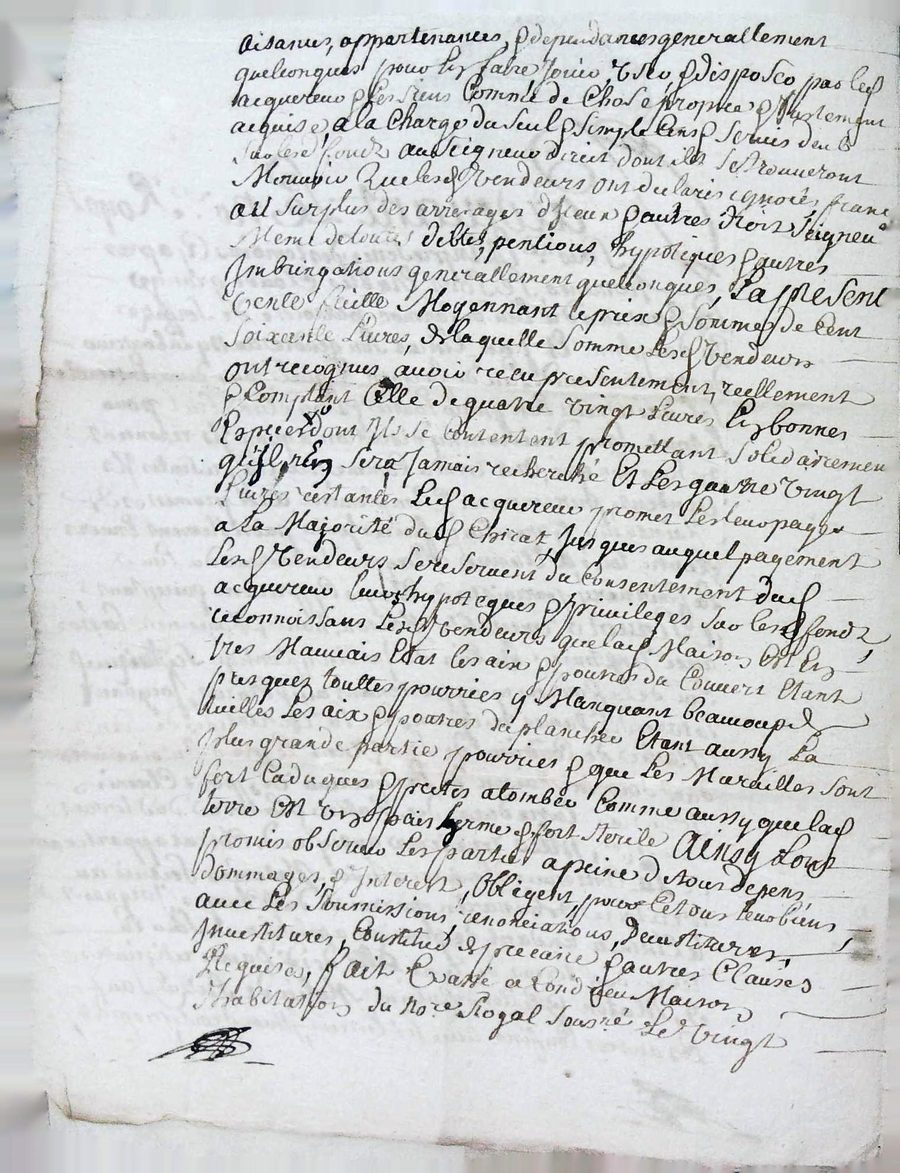 aisances, appartenances, & dependances generallement
quelconques pour en faire Jouir, User, & disposer par led
acquereur & les siens Comme de Chose propre & Justement
acquise a la Charge du seul & simple Cens & servis deub
sur lesd fondz au seigneur direct dont ils se trouveront
Mouvoir que lesd Vendeurs ont declaré ignorer, franc
au surplus des arrerages d'Iceux & autres droit seigneu.x
Meme de toutes debtes, pentions, hypotiques & autres
Imbringations generallement quelconques, La presente
Vente faitte Moyennant le prix & Somme de Cent
Soixante Livres, de laquelle Somme Lesd Vendeurs
ont recognus avoir receu presentement, reellement
& Comptant Celle de quatre vingt Livres En bonnes
Especes dont Ils se Contentent promettant solidairemen
qu'il n'En sera Jamais recherché Et Les quatre vingt
Livres restantes Led acquereur promet Les leur payer
a la Majorité dud Chirat, Jusques auquel payement
Lesd Vendeurs se reservent du Consentement dud
acquereur leurs hypoteques & privileges sur lesd fondz,
reconnoissans Lesd Vendeurs que lad Maison Est En
tres Mauvais Etat les aix & poutres du Couvert Etant
presques touttes pourries y Manquant beaucoup de
tuilles Les aix & poutres du planche Etant aussy La
plus grande partie pourries & que Les Murailles sont
fort Caduques & pretes a tomber Comme aussy que lad
terre Est Un pais herme & fort sterile Ainsy L'ont
promis observer Les parties a peine de tous depens,
dommages, & Interest, Obligent, pour Ce tous leurs biens
avec Les soumissions, renonciations, Devestitures,
Investitures, Constitut de precaire & autres Clauses
Requises, fait & passé a Condrieu Maison
d'habitation du Nore Royal Soussé Le Vingt